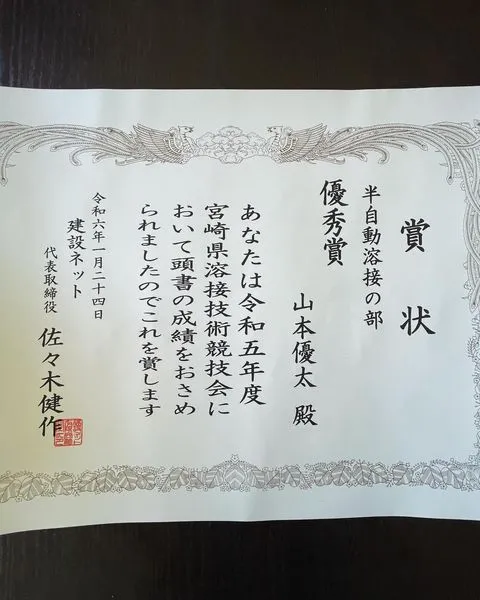 賞状
半自動溶接の部
優秀賞
山本優太 殿
あなたは令和五年度
宮崎県溶接技術競技会に
おいて頭書の成績をおさめ
られましたのでこれを賞します
令和六年一月二十四日
建設ネット
代表取締役 佐々木健作